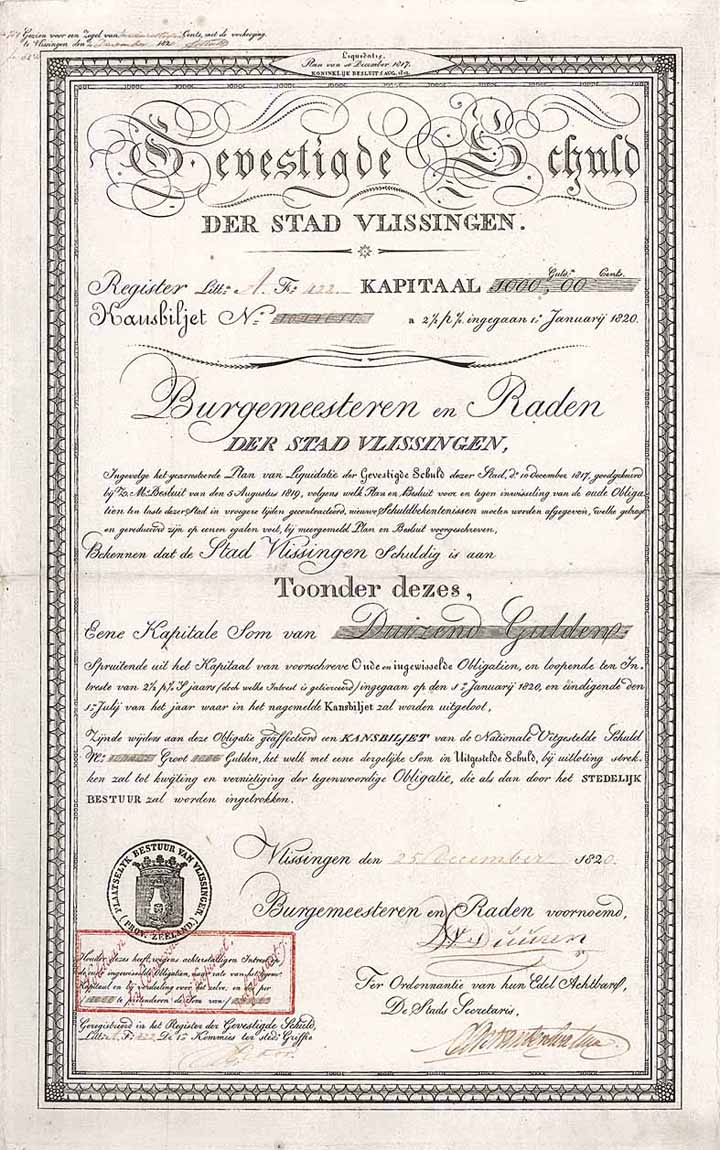 Gezien voor een Zegel van Cents, met de verhooging.
te Vlissingen den December 182
Liquidatie.
Plan van 10 December 1817.
KONINKLIJK BESLUIT 5 AUG. 1819.
Gevestigde Schuld
DER STAD VLISSINGEN.
Guld.s Cents.
Register Litt.a A. F.o 122 KAPITAAL 1000,, 00
Kansbiljet N.o a 2½ p % ingegaan 1.e Januarij 1820.
Burgemeesteren en Raden
DER STAD VLISSINGEN,
Ingevolge het gearresteerde Plan van Liquidatie der Gevestigde Schuld dezer Stad, d.o 10 December 1817, goedgekeurd
bij Z. M. Besluit van den 5 Augustus 1819, volgens welk Plan en Besluit voor en tegen inwisseling van de oude Obliga-
tien ten laste dezer Stad in vroegere tijden gecontracteerd, nieuwe Schuldbekentenissen moeten worden afgegeven, welke gebragt
en gereduceerd zijn op eenen egalen voet, bij meergemeld Plan en Besluit voorgeschreven,
Bekennen dat de Stad Vlissingen Schuldig is aan
Toonder dezes,
Eene Kapitale Som van Duizend Gulden,
Spruitende uit het Kapitaal van voorschreve Oude en ingewisselde Obligatien, en loopende ten In-
treste van 2½ p% S'jaars (doch welke Intrest is gelivereerd) ingegaan op den 1.e Januarij 1820, en eindigende den
1.e Julij van het jaar waar in het nagemelde Kansbiljet zal worden uitgeloot,
Zijnde wijders aan deze Obligatie geäffecteerd een KANSBILJET van de Nationale Uitgestelde Schuld
N.o Groot Gulden, het welk met eene dergelijke Som in Uitgestelde Schuld, bij uitloting strek-
ken zal tot kwijting en vernietiging der tegenwoordige Obligatie, die als dan door het STEDELIJK
BESTUUR zal worden ingetrokken.
Vlissingen den 25 December 1820.
PLAATSELYK BESTUUR VAN VLISSINGEN.
(PROV. ZEELAND.)
Burgemeesteren en Raden voornoemd,
Houder dezes heeft, wegens achterstalligen Intrest
Kapitaal en bij verdeeling over het zelve, en per
te pretenderen de Som van
Ter Ordonnantie van hun Edel Achtbare,
De Stads Secretaris,
Geregistreerd in het Register der Gevestigde Schuld,
Litt.a A. F.o 122. De 1.e Kommies ter sted.e Griffie